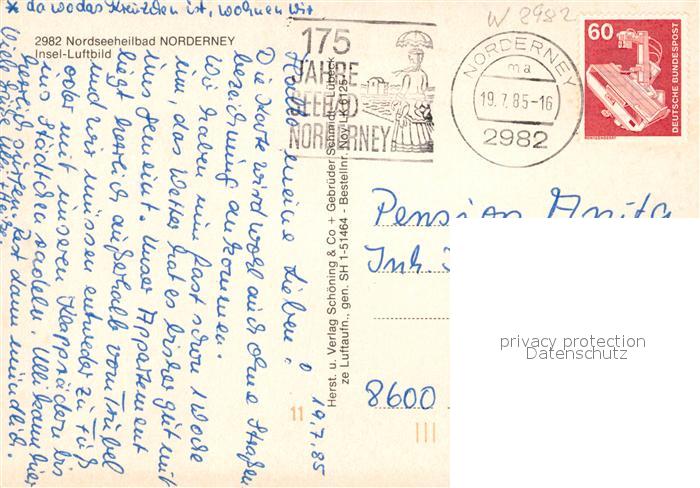 * da wo das Kreuzchen ist, wohnen wir
2982 Nordseeheilbad NORDERNEY
Insel-Luftbild
W 8982
175
JAHRE
SEEBAD
NORDERNEY
NORDERNEY
ma
19.7.85-16
2982
60
DEUTSCHE BUNDESPOST
Hallo meine Lieben!
19.7.85
Die Karte wird wohl auch ohne Straßen
bezeichnung ankommen.
Wir haben nun fast schon 1 Woche
um, das Wetter hat es bisher gut mit
uns gemeint. Unser Appartement
liegt herrlich außerhalb vom Trubel
und wir müssen entweder zu Fuß
oder mit unseren Klapprädern bis
ins Städtchen radeln. Ulli kann hier
herrlich surfen. Rest dann mündlich.
Viele
Herst. u. Verlag Schöning & Co + Gebrüder Schmidt, Lübeck
ze Luftaufn., gen. SH 1-51464 - Bestellnr. Noy LK 6125
Pension Anita
Inh.
8600
11
privacy protection
Datenschutz